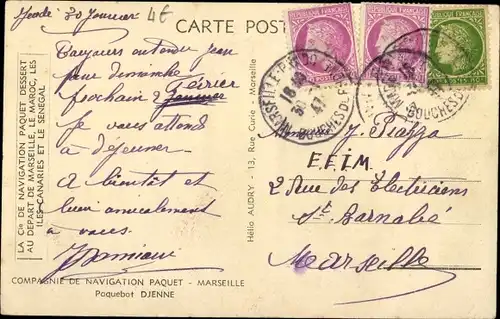 Jeudi 30 Janvier
4€
CARTE POST
Toujours entendu pour
pour dimanche
Février
prochain 2 Janvier
Je vous attends
à déjeuner
A bientôt et
bien amicalement
à vous.
Damiani
LA Cie DE NAVIGATION PAQUET DESSERT
AU DEPART DE MARSEILLE, LE MAROC, LES
ILES CANARIES ET LE SENEGAL
Hélio AUDRY - 13, Rue Curie - Marseille
COMPAGNIE DE NAVIGATION PAQUET - MARSEILLE
Paquebot DJENNE
REPUBLIQUE FRANÇAISE
REPUBLIQUE FRANÇAISE
POSTES
MARSEILLE
18
30
47
BOUCHES DU RHONE
J. Piazza
E.F.I.M.
2 Rue des Electriciens
St Barnabé
Marseille